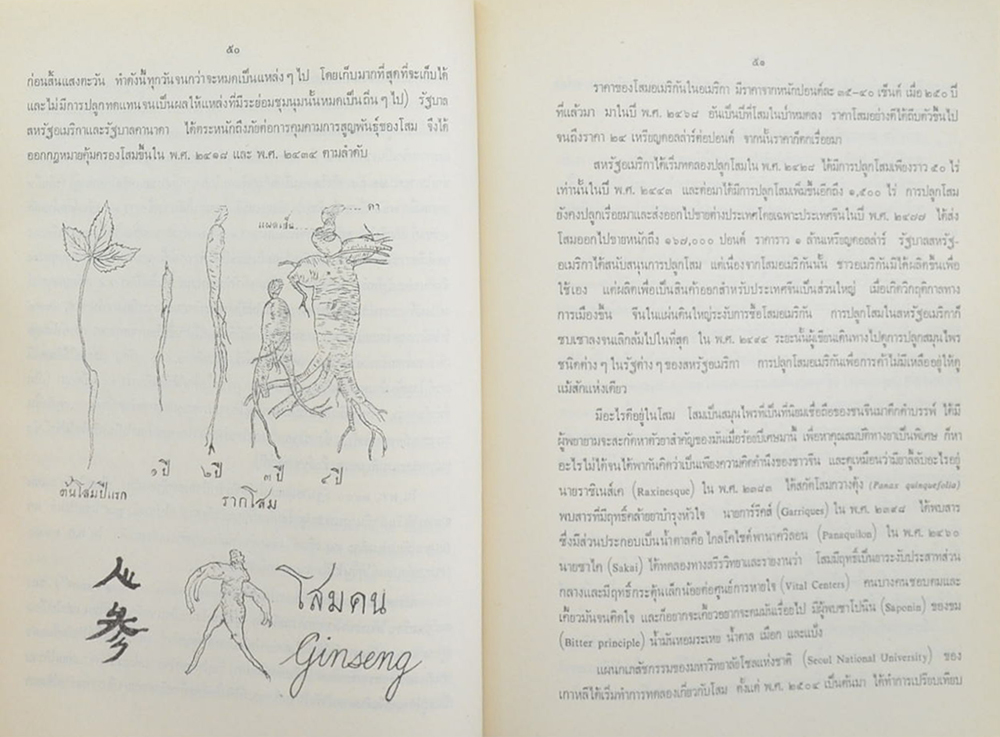 ๕๐
ก่อนสิ้นแสงตะวัน ทำดังนี้ทุกวันจนกว่าจะหมดเป็นแหล่ง ๆ ไป โดยเก็บมากที่สุดที่จะเก็บได้
และไม่มีการปลูกทดแทนจนเป็นผลให้แหล่งที่มีระย่อมชุมนุมนั้นหมดเป็นถิ่น ๆ ไป) รัฐบาล
สหรัฐอเมริกาและรัฐบาลคานาดา ได้ตระหนักถึงภัยต่อการคุมคามการสูญพันธุ์ของโสม จึงได้
ออกกฎหมายคุ้มครองโสมขึ้นใน พ.ศ. ๒๔๑๘ และ พ.ศ. ๒๔๓๔ ตามลำดับ
ตา
แผลเป็น
๑ ปี
๒ ปี
๓ ปี
๔ ปี
ต้นโสมปีแรก
รากโสม
人
參
โสมคน
Ginseng
๕๑
ราคาของโสมอเมริกันในอเมริกา มีราคาจากหนักปอนด์ละ ๓๕-๔๐ เซ็นต์ เมื่อ ๒๕๐ ปี
ที่แล้วมา มาในปี พ.ศ. ๒๔๖๘ อันเป็นปีที่โสมในป่าหมดลง ราคาโสมอย่างดีได้ถีบตัวขึ้นไป
จนถึงราคา ๒๔ เหรียญดอลล่าร์ต่อปอนด์ จากนั้นราคาก็ตกเรื่อยมา
สหรัฐอเมริกาได้เริ่มทดลองปลูกโสมใน พ.ศ. ๒๔๒๘ ได้มีการปลูกโสมเพียงราว ๕๐ ไร่
เท่านั้นในปี พ.ศ. ๒๔๔๓ และต่อมาได้มีการปลูกโสมเพิ่มขึ้นอีกถึง ๑,๕๐๐ ไร่ การปลูกโสม
ยังคงปลูกเรื่อยมาและส่งออกไปขายต่างประเทศโดยเฉพาะประเทศจีนในปี พ.ศ. ๒๔๗๗ ได้ส่ง
โสมออกไปขายหนักถึง ๑๖๗,๐๐๐ ปอนด์ ราคาราว ๑ ล้านเหรียญดอลล่าร์ รัฐบาลสหรัฐ-
อเมริกาได้สนับสนุนการปลูกโสม แต่เนื่องจากโสมอเมริกันนั้น ชาวอเมริกันมิได้ผลิตขึ้นเพื่อ
ใช้เอง แต่ผลิตเพื่อเป็นสินค้าออกสำหรับประเทศจีนเป็นส่วนใหญ่ เมื่อเกิดวิกฤติกาลทาง
การเมืองขึ้น จีนในแผ่นดินใหญ่ระงับการซื้อโสมอเมริกัน การปลูกโสมในสหรัฐอเมริกาก็
ซบเซาลงจนเลิกล้มไปในที่สุด ใน พ.ศ. ๒๔๙๔ ระยะนั้นผู้เขียนเดินทางไปดูการปลูกสมุนไพร
ชนิดต่าง ๆ ในรัฐต่าง ๆ ของสหรัฐอเมริกา การปลูกโสมอเมริกันเพื่อการค้าไม่มีเหลืออยู่ให้ดู
แม้สักแห่งเดียว
มีอะไรดีอยู่ในโสม โสมเป็นสมุนไพรที่เป็นที่นิยมเชื่อถือของชนจีนมาดึกดำบรรพ์ ได้มี
ผู้พยายามจะสะกัดหาตัวยาสำคัญของมันเมื่อร้อยปีเศษมานี้ เพื่อหาคุณสมบัติทางยาเป็นพิเศษ ก็หา
อะไรไม่ได้จนได้พากันคิดว่าเป็นเพียงความคิดคำนึงของชาวจีน และดูเหมือนว่ามีอาลึลับอะไรอยู่
นายราซิเนส์เค (Raxinesque) ใน พ.ศ. ๒๓๘๓ ได้สกัดโสมกวางตุ้ง (Panax quinquefolia)
พบสารที่มีฤทธิ์คล้ายยาบำรุงหัวใจ นายการ์ริคส์ (Garriques) ใน พ.ศ. ๒๓๙๘ ได้พบสาร
ซึ่งมีส่วนประกอบเป็นน้ำตาลคือ ไกลโคไซด์พานาควิลอน (Panaquilon) ใน พ.ศ. ๒๔๖๐
นายซาไค (Sakai) ได้ทดลองทางสรีรวิทยาและรายงานว่า โสมมีฤทธิ์เป็นยาระงับประสาทส่วน
กลางและมีฤทธิ์กระตุ้นเล็กน้อยต่อศูนย์การหายใจ (Vital Centers) คนบางคนชอบดมและ
เคี้ยวมันจนติดใจ และก็อยากจะเคี้ยวอยากจะดมมันเรื่อยไป มีผู้พบซาโปนิน (Saponin) ของขม
(Bitter principle) น้ำมันหอมระเหย น้ำตาล เมือก และแป้ง
แผนกเภสัชกรรมของมหาวิทยาลัยโซลแห่งชาติ (Seoul National University) ของ
เกาหลีได้เริ่มทำการทดลองเกี่ยวกับโสม ตั้งแต่ พ.ศ. ๒๕๐๔ เป็นต้นมา ได้ทำการเปรียบเทียบ